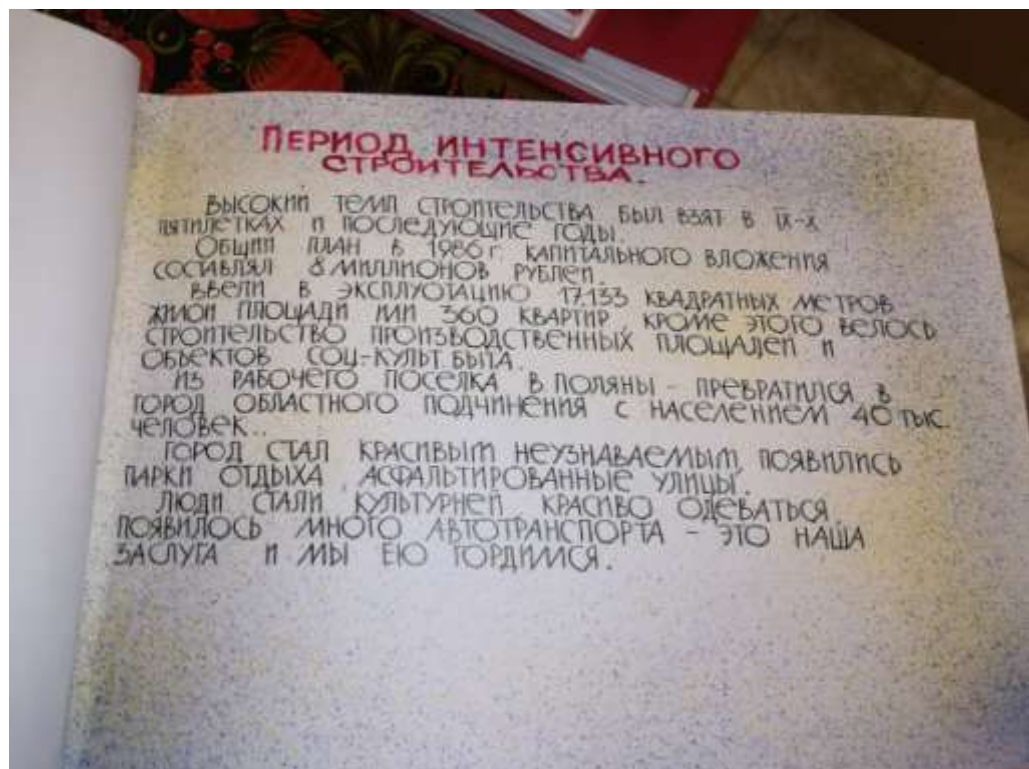 ПЕРИОД ИНТЕНСИВНОГО
СТРОИТЕЛЬСТВА.
ВЫСОКИЙ ТЕМП СТРОИТЕЛЬСТВА БЫЛ ВЗЯТ В IX-X
ПЯТИЛЕТКАХ И ПОСЛЕДУЮЩИЕ ГОДЫ.
ОБЩИЙ ПЛАН В 1986 Г. КАПИТАЛЬНОГО ВЛОЖЕНИЯ
СОСТАВЛЯЛ 8 МИЛЛИОНОВ РУБЛЕЙ.
ВВЕЛИ В ЭКСПЛУОТАЦИЮ 17.133 КВАДРАТНЫХ МЕТРОВ
ЖИЛОЙ ПЛОЩАДИ ИЛИ 360 КВАРТИР, КРОМЕ ЭТОГО ВЕЛОСЬ
СТРОИТЕЛЬСТВО ПРОИЗВОДСТВЕННЫХ ПЛОЩАДЕЙ И
ОБЬЕКТОВ СОЦ-КУЛЬТ БЫТА.
ИЗ РАБОЧЕГО ПОСЕЛКА В.ПОЛЯНЫ - ПРЕВРАТИЛСЯ В
ГОРОД ОБЛАСТНОГО ПОДЧИНЕНИЯ С НАСЕЛЕНИЕМ 40 ТЫС.
ЧЕЛОВЕК..
ГОРОД СТАЛ КРАСИВЫМ НЕУЗНАВАЕМЫМ, ПОЯВИЛИСЬ
ПАРКИ ОТДЫХА, АСФАЛЬТИРОВАННЫЕ УЛИЦЫ.
ЛЮДИ СТАЛИ КУЛЬТУРНЕЙ КРАСИВО ОДЕВАТЬСЯ
ПОЯВИЛОСЬ МНОГО АВТОТРАНСПОРТА - ЭТО НАША
ЗАСЛУГА И МЫ ЕЮ ГОРДИМСЯ.